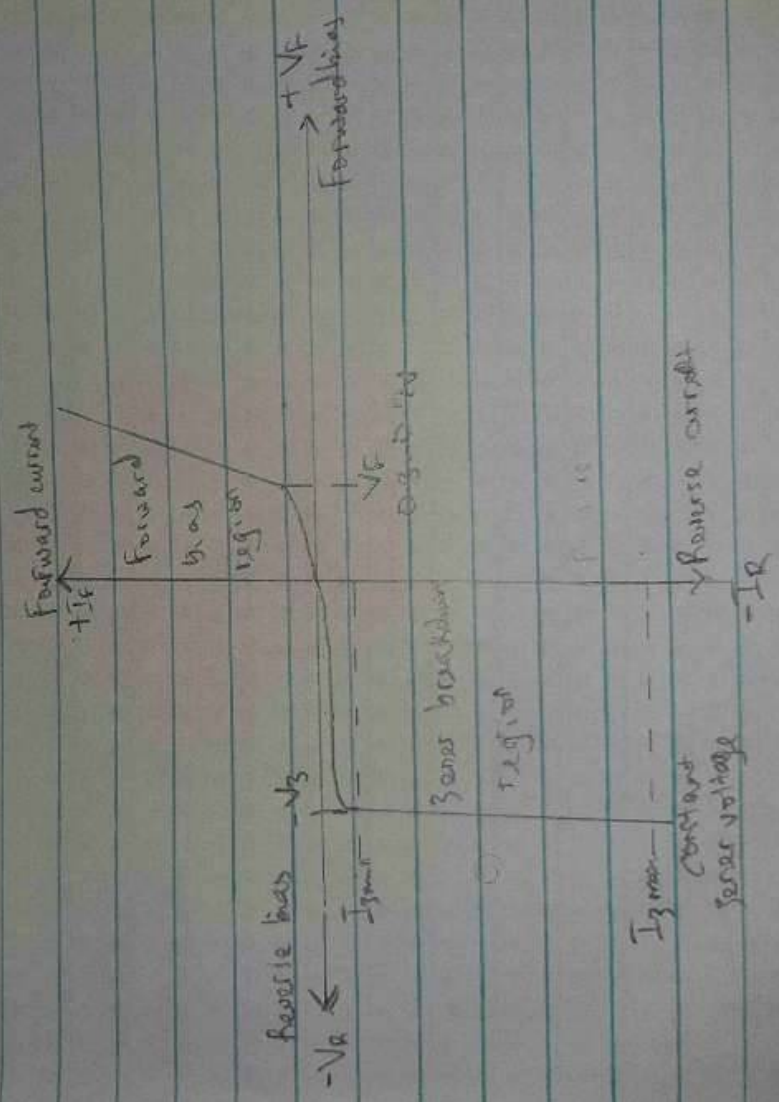 Forward current
+IF
Forward
bias
region
+VF
Forward bias
Reverse bias
-V3
-VR
VF
I3min
3ener breakdown
region
I3max
Constant
3ener voltage
Reverse current
-IR